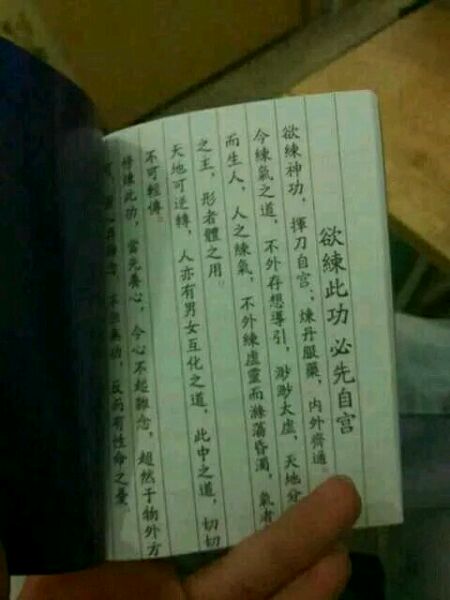 欲練此功 必先自宫
欲練神功，揮刀自宫；煉丹服藥，内外齊通。
今練氣之道，不外存想導引，渺渺太虛，天地分
而生人，人之練氣，不外練虛靈而滌蕩昏濁，氣者
之王，形者體之用。
天地可逆轉，人亦有男女互化之道，此中之道，切切
不可輕傳。
修練此功，當先養心，令心不起雜念，超然于物外方
雜念，不但無功，反而有性命之憂。